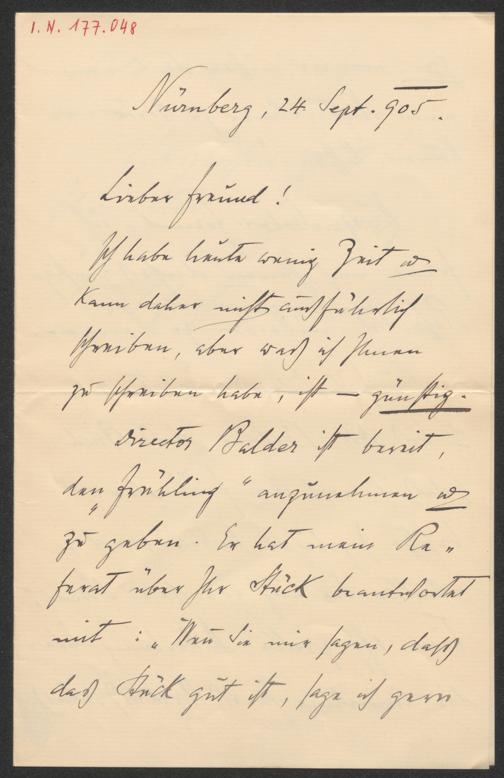 I. N. 177.048
Nürnberg, 24. Sept. 905.
Lieber Freund!
Ich habe heute wenig Zeit u
kann daher nicht ausführlich
schreiben, aber was ich Ihnen
zu schreiben habe, ist – günstig.
Director Balder ist bereit,
den „Frühling“ anzunehmen u
zu geben. Er hat mein Re„
ferat über Ihr Stück beantwortet
mit: „Wenn Sie mir sagen, dass
das Stück gut ist, sage ich gern